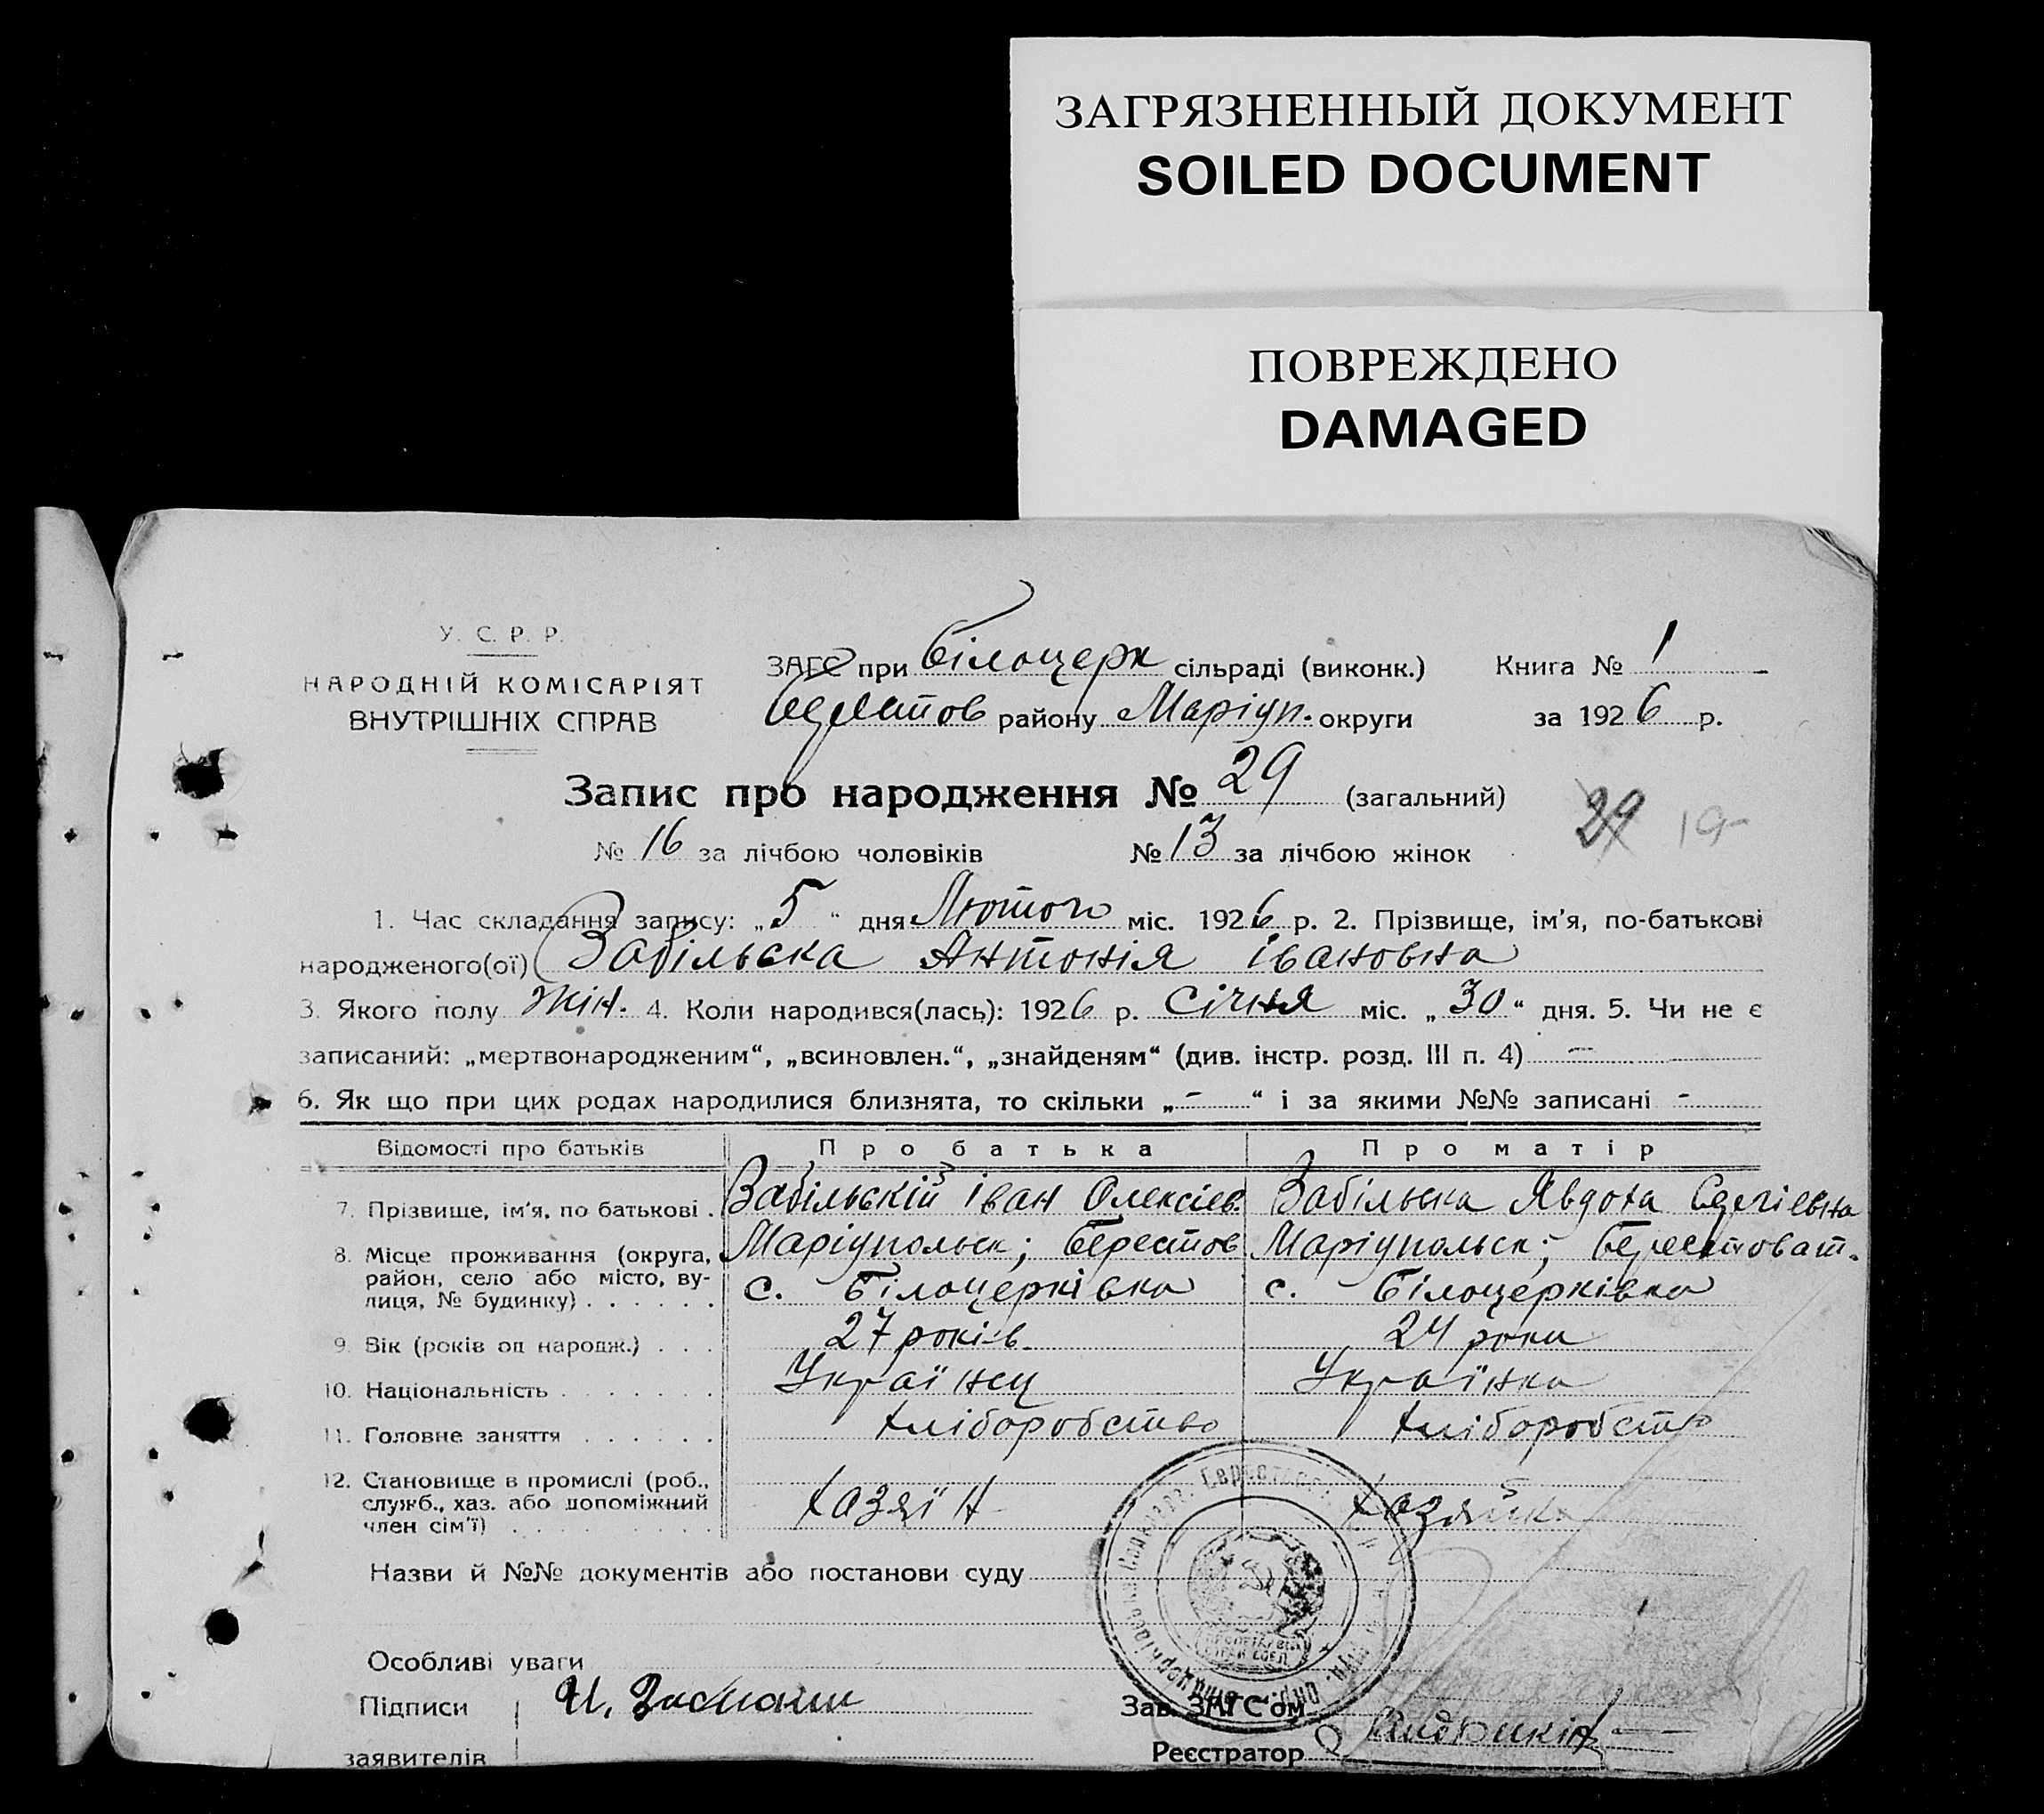 ЗАГРЯЗНЕННЫЙ ДОКУМЕНТ
SOILED DOCUMENT
ПОВРЕЖДЕНО
DAMAGED
У. С. Р. Р.
НАРОДНІЙ КОМІСАРІЯТ
ВНУТРІШНІХ СПРАВ
ЗАГС при Білоцерк сільраді (виконк.) Книга № 1
району Маріуп. округи за 1926 р.
Запис про народження № 29 (загальний)
29 19
№ 16 за лічбою чоловіків № 13 за лічбою жінок
1. Час складання запису: „5“ дня Лютого міс. 1926 р. 2. Прізвище, ім'я, по-батькові
народженого(ої) Забільска Антонія Івановна
3. Якого полу Жін. 4. Коли народився(лась): 1926 р. Січня міс. „30“ дня. 5. Чи не є
записаний: „мертвонародженим“, „всиновлен.“, „знайденям“ (див. інстр. розд. III п. 4) —
6. Як що при цих родах народилися близнята, то скільки „-“ і за якими №№ записані -
Відомості про батьків Про батька Про матір
7. Прізвище, ім'я, по батькові . Забільскій Іван Олексіев. Забільска Явдоха
8. Місце проживання (округа, Маріупольск; Берестов Маріупольск; Берестоват.
район, село або місто, ву- с. Білоцерківка с. Білоцерківка
лиця, № будинку) . . . . . .
9. Вік (років од народж.) . . . 27 років. 24 роки
10. Національність . . . . . . . Українец Українка
11. Головне заняття . . . . . . Хліборобство Хліборобств
12. Становище в промислі (роб., Хазяїн Хазяйка
служб., хаз. або допоміжний
член сім'ї) . . . . . . . . .
Назви й №№ документів або постанови суду
Особливі уваги
Підписи И. Зав. ЗАГС'ом
заявителів Реєстратор